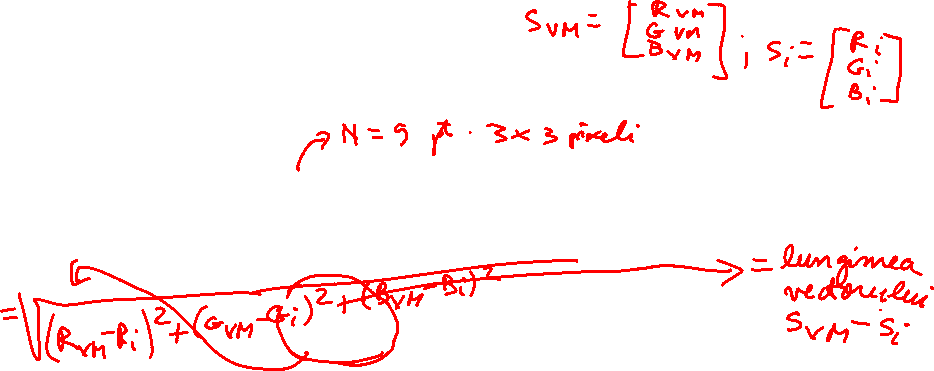 S_VM = [R_VM G_VM B_VM] ; S_i = [R_i G_i B_i]
N = 9 pt. 3 x 3 pixeli
= √(R_VM - R_i)² + (G_VM - G_i)² + (B_VM - B_i)² = lungimea
vectorului
S_VM - S_i